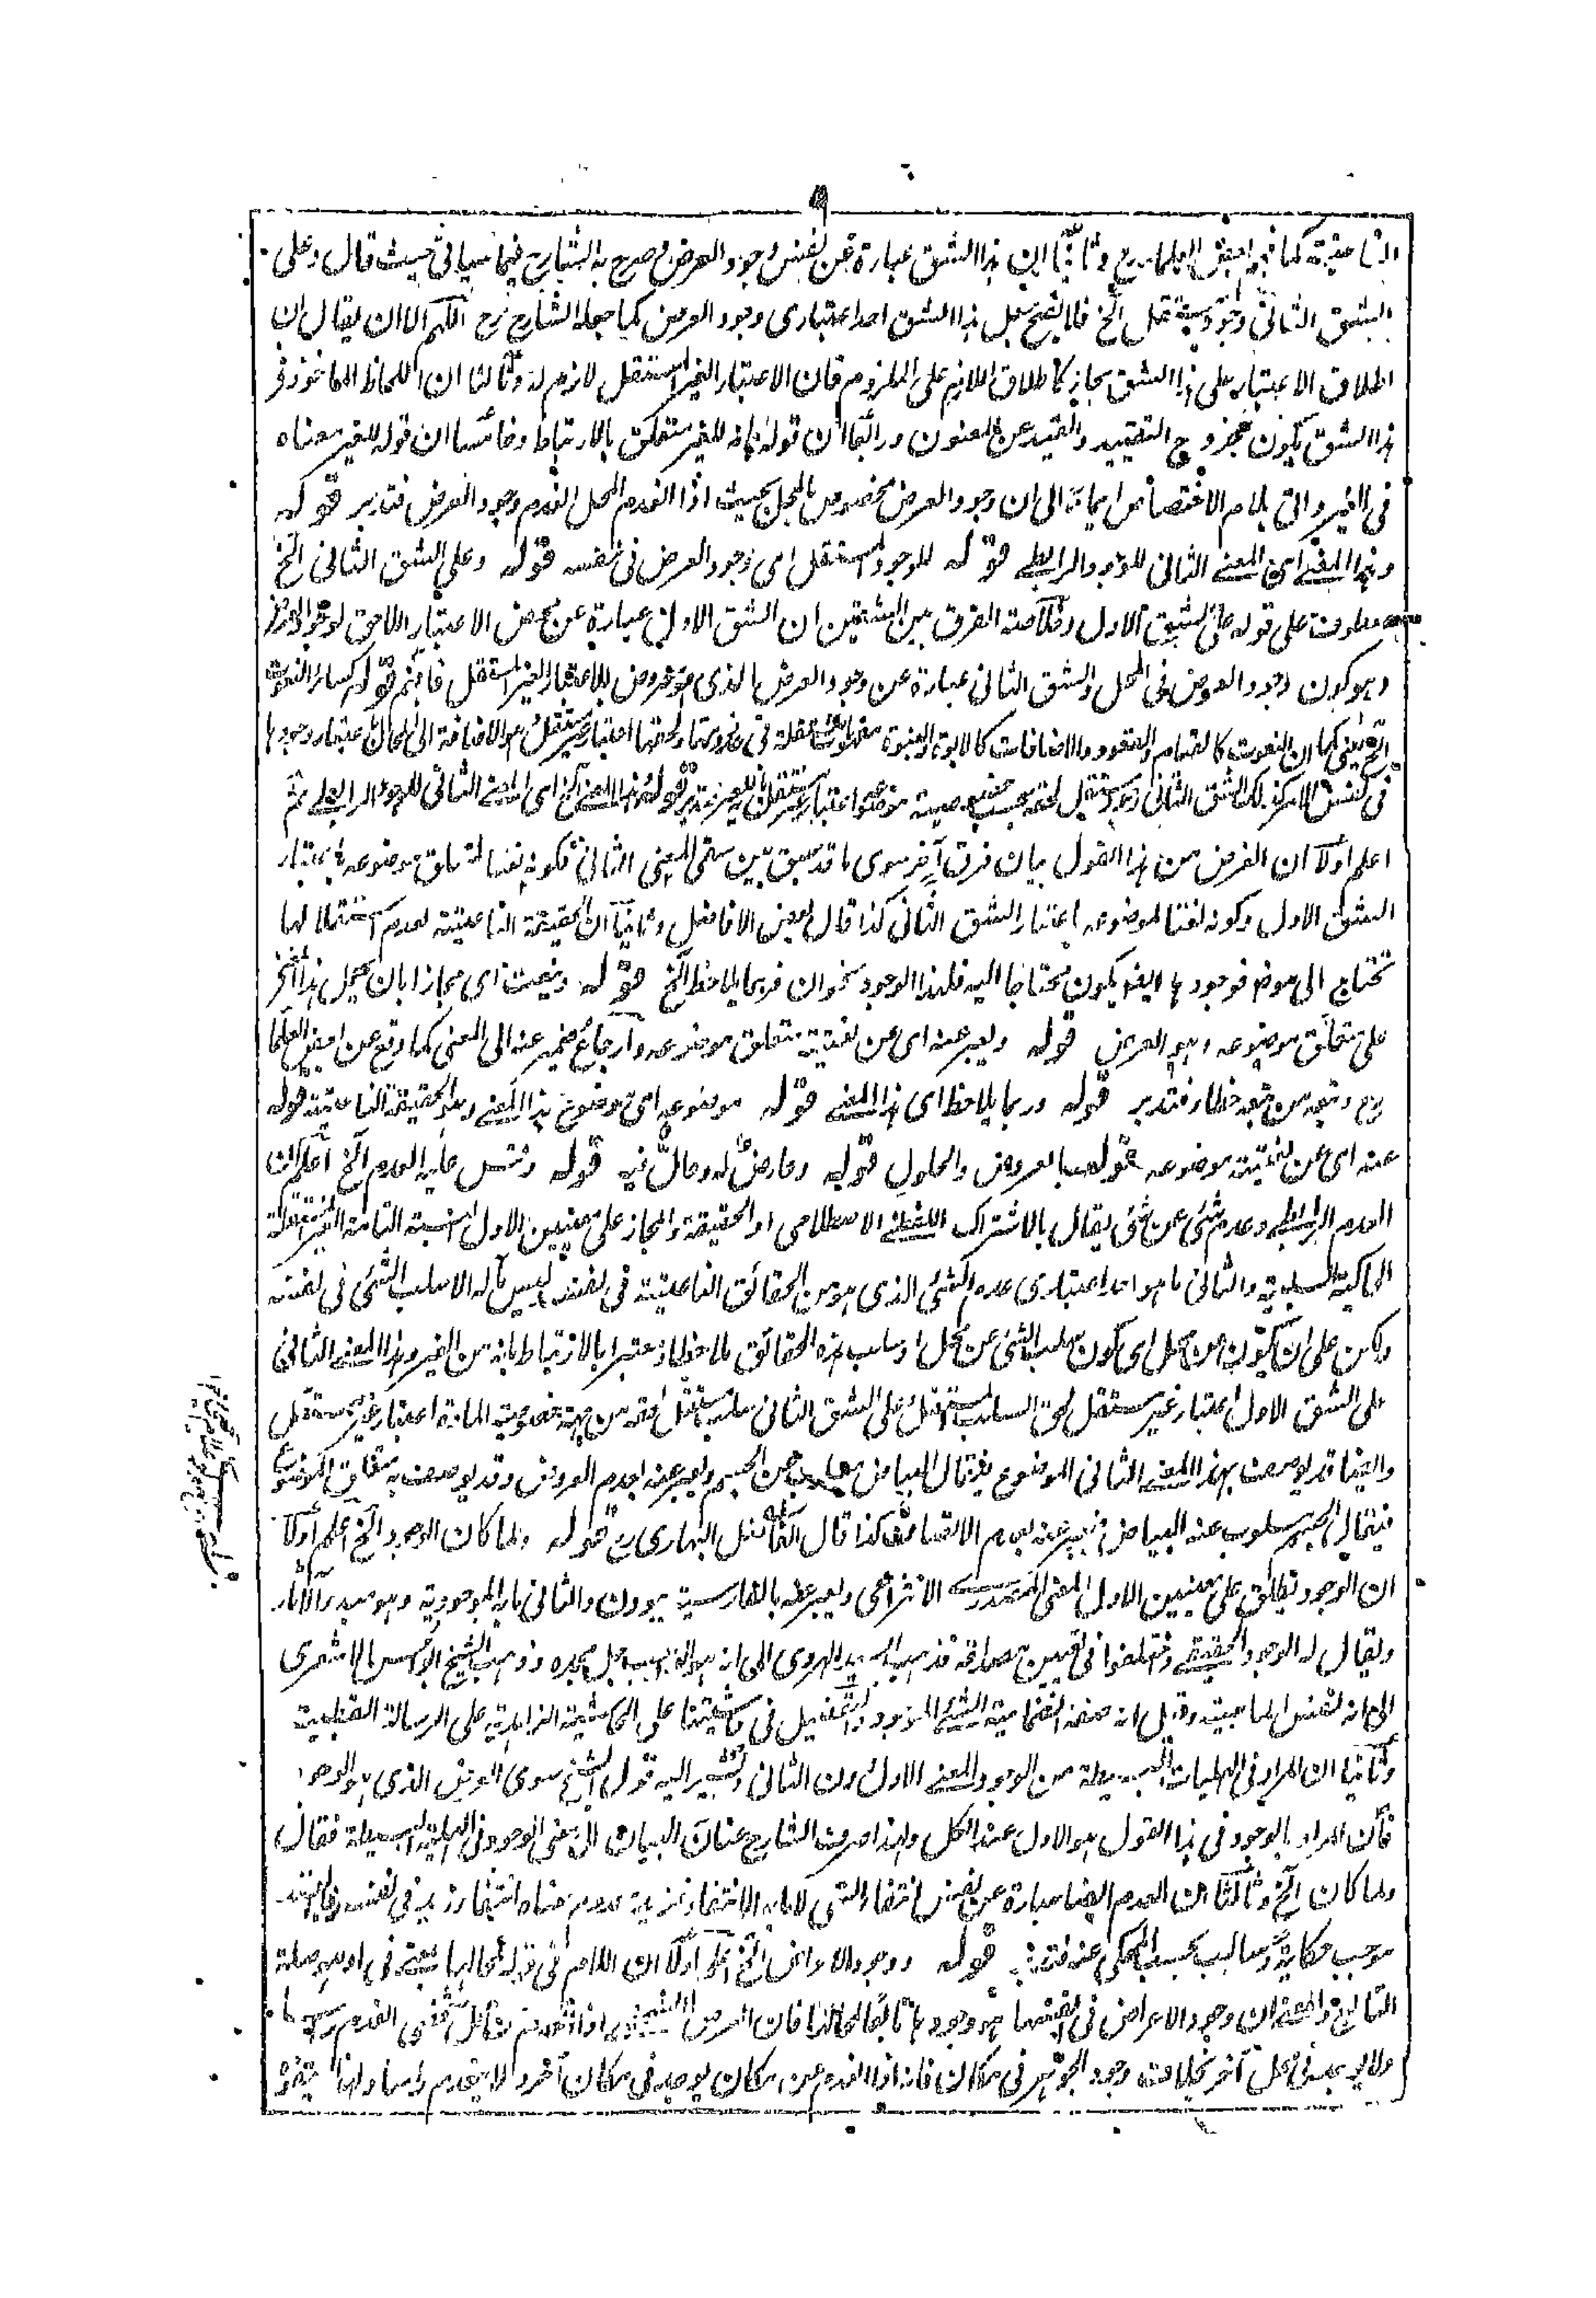 الناعتية كما فهم بعض العلماء رح وثانيا ان هذا الشق عبارة عن نفس وجود العرض وصرح به الشارح فيما سيأتي حيث قال وعلى
الشق الثاني وجود مستقل الخ فلا يصح جعل هذا الشق احد اعتباري وجود العرض كما جعله الشارح رح اللهم الا ان يقال ان
اطلاق الاعتبار على هذا الشق مجاز كاطلاق اللازم على الملزوم فان الاعتبار الغير المستقل لازم له وثالثا ان اللحاظ الماخوذ في
هذا الشق يكون بخروج التقييد والقيد عن المعنون ورابعا ان قوله بانه للغير متعلق بالارتباط وخامسا ان قوله للغير معناه
في الغير واتى بلام الاختصاص ايماء الى ان وجود العرض مخصوص بالمحل بحيث اذا انعدم المحل انعدم وجود العرض فتدبر قوله
وبهذا المعنى اى المعنى الثاني للوجود الرابطي قوله للوجود المستقل اى وجود العرض في نفسه قوله وعلى الشق الثاني الخ
معطوف على قوله على الشق الاول وخلاصة الفرق بين الشقين ان الشق الاول عبارة عن محض الاعتبار اللاحق لوجود العرض
وهو كون وجود العرض في المحل والشق الثاني عبارة عن وجود العرض الذى هو معروض للاعتبار الغير المستقل فافهم قوله كسائر النعوت
الخ يعني كما ان النعوت كالقيام والقعود والاضافات كالابوة والبنوة مفهومات مستقلة في انفسها ولحقها اعتبار غير مستقل هو الاضافة الى المحال باعتبار وجودها
في نفس الامر كذلك الشق الثاني وجود مستقل لحقه بحسب خصوصية موضوعه اعتبار غير مستقل بانه للغير فتدبر قوله وبهذا المعنى الخ اى المعنى الثاني للوجود الرابطي ثم
اعلم اولا ان الغرض من هذا القول بيان فرق آخر سوى ما قد سبق بين شقى المعنى الثاني بكونه نعتا لمتعلق موضوعه باعتبار
الشق الاول وكونه نعتا لموضوعه باعتبار الشق الثاني كذا قال بعض الافاضل وثانيا ان الحقيقة الناعتية لعدم استقلالها
تحتاج الى موضوع فوجودها ايضا يكون محتاجا اليه فلهذا الوجود نحوان فربما يلاحظ الخ قوله وينعت اى مجازا بان يحمل هذا النحو
على متعلق موضوعه وهو العرض قوله ويعبر عنه اى عن نعتية متعلق موضوعه وارجاع ضمير عنه الى المعنى كما وقع عن بعض العلماء
رح وتبعه من تبعه خطا فتدبر قوله وربما يلاحظ اى هذا المعنى قوله موضوعه اى موضوع هذا المعنى وهو الحقيقة الناعتية قوله
عنه اى عن نعتية موضوعه قوله بالعروض والحلول قوله وعارض له وحال فيه قوله وقس عليه العدم الخ اعلم ان
العدم الرابطي وعدم شئ عن شئ يقال بالاشتراك اللفظي الاصطلاحي او الحقيقة والمجاز على معنيين الاول النسبة التامة الغير المستقلة
الحاكية السلبية والثاني ما هو احد اعتبارى عدم الشئ الذى هو من الحقائق الناعتية في نفسه ليس مآله الا سلب الشئ في نفسه
ولكن على ان يكون عن محل اى كون سلب الشئ عن محل او سلب هذه الحقائق ملاحظا ومعتبرا بالارتباط بانه من الغير وهذا المعنى الثاني
على الشق الاول اعتبار غير مستقل لحق السلب المستقل وعلى الشق الثاني سلب مستقل لحقه من جهة خصوصية المادة اعتبار غير مستقل
وايضا قد يوصف بهذا المعنى الثاني الموضوع فيقال البياض معدوم عن الجسم ويعبر عنه بعدم العروض وقد يوصف به متعلق الموضوع
فيقال الجسم مسلوب عنه البياض ويعبر عنه بعدم الاتصاف كذا قال الفاضل البهاري رح قوله ولما كان الوجود الخ اعلم اولا
ان الوجود يطلق على معنيين الاول المعنى المصدرى الانتزاعي ويعبر عنه بالفارسية ببودن والثاني ما به الموجودية وهو مبدء الآثار
ويقال له الوجود الحقيقي واختلفوا في تعيين مصداقه فذهب السيد الهروي الى انه هو الواجب جل مجده وذهب الشيخ ابو الحسن الاشعري
الى انه نفس الماهية وقيل انه صفة انضمامية للشئ الموجود والتفصيل في حاشيتنا على الحاشية الزاهدية على الرسالة القطبية
وثانيا ان المراد في الهليات البسيطة من الوجود المعنى الاول دون الثاني ويشير اليه قول الشيخ سوى العرض الذى هو الوجود
فان المراد بالوجود في هذا القول هو الاول عند الكل ولهذا صرف الشارح عنان البيان الى معنى الوجود في الهلية البسيطة فقال
ولما كان الخ وثالثا ان العدم ايضا عبارة عن نفس انتفاء الشئ لا ما به الانتفاء فزيد معدوم معناه انتفاء زيد في نفسه
موجب حكاية وسالب بحسب المحكى عنه فتدبر قوله ووجود الاعراض الخ اعلم اولا ان اللام في قوله لمحالها بمعنى في او هو صلة
التابع والمعنى ان وجود الاعراض في انفسها هو وجودها تابعا لمحالها فان العرض اذا انعدم عن محل شخصى انعدم راسا
ولا يوجد في محل آخر بخلاف وجود الجوهر في مكان فانه اذا انعدم عن مكان يوجد في مكان آخر ولا ينعدم راسا ولهذا